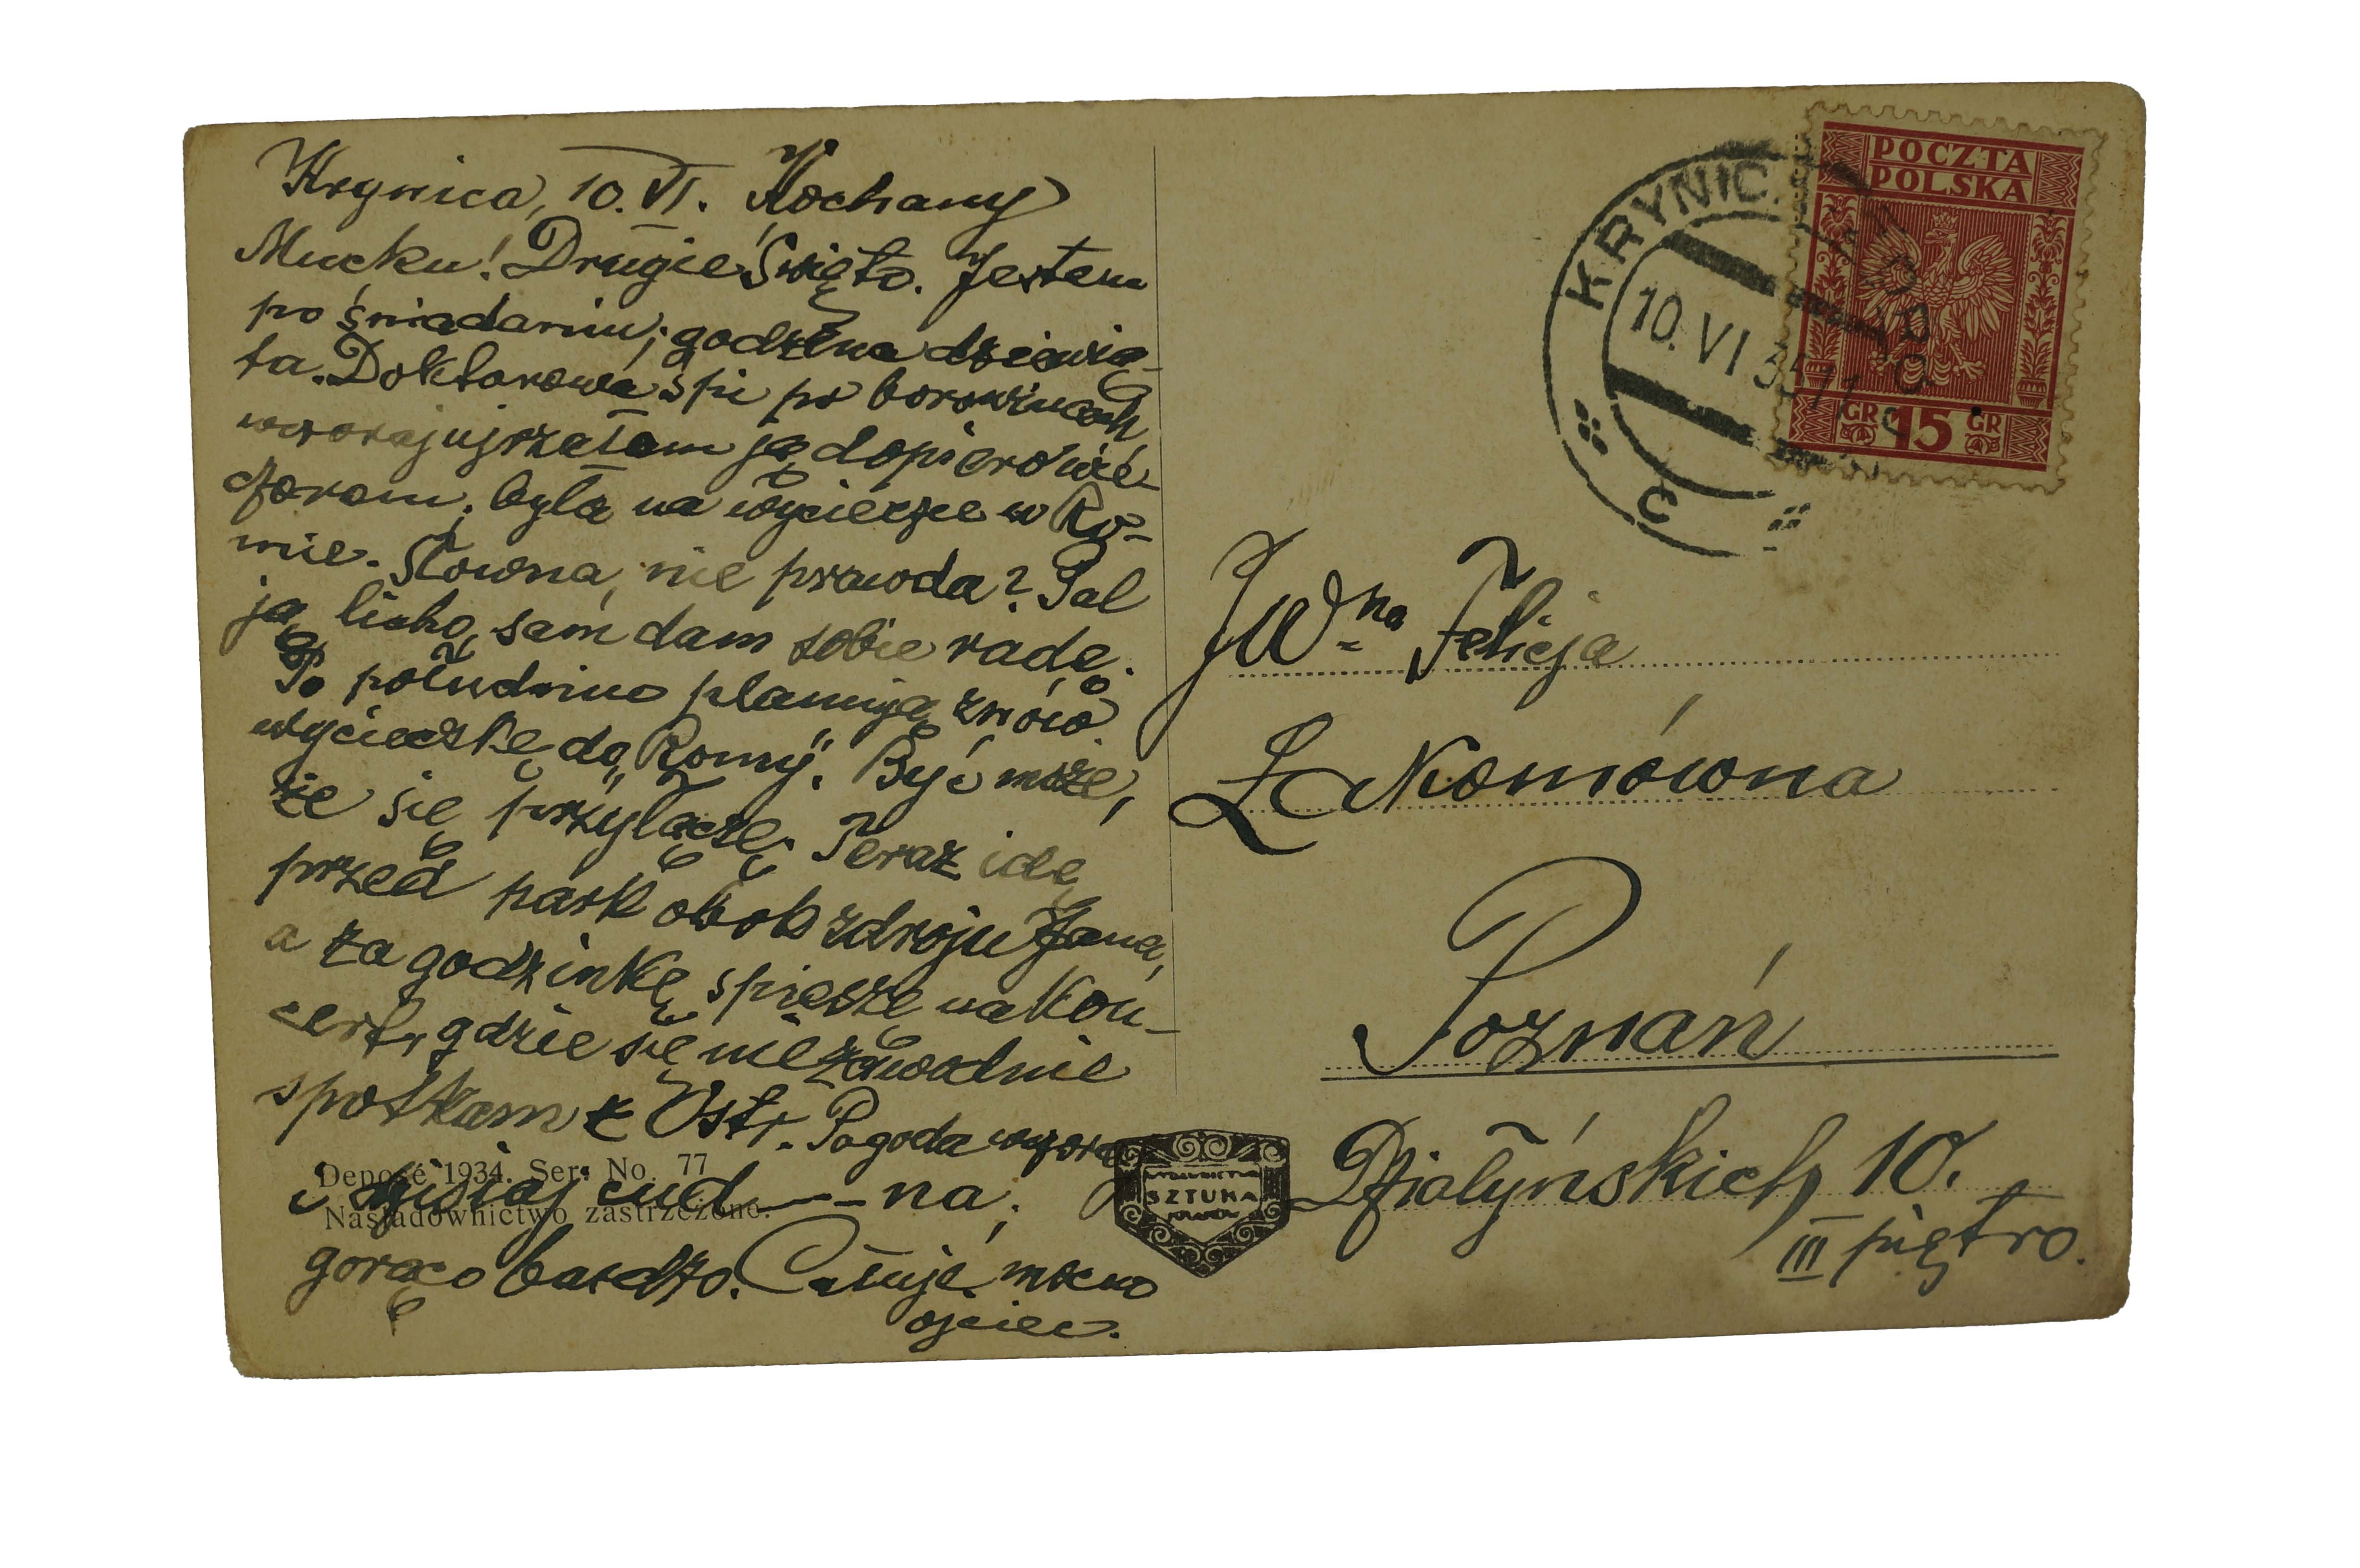 Krynica, 10. VI. Kochany
Mucku! Drugie Święto. Jestem
po śniadaniu; godzina dziewią-
ta. Doktorowa śpi po borowinach
wczoraj ujrzałam ją dopiero wie-
czorem; była na wycieczce w Ro-
mie. Słowna, nie prawda? Pal
ją licho, sam dam sobie radę.
Po południu planują znów
wycieczkę do „Romy". Być może,
że się przyłączę. Teraz idę
przed park obok zdroju Jana,
a za godzinkę spieszę na kon-
cert, gdzie się niezawodnie
spotkam z Ostr. Pogoda wczoraj
i dzisiaj cud---na;
gorąco bardzo. Całuję mocno
ojciec.
Deposé 1934. Ser. No. 77
Naśladownictwo zastrzeżone.
WYDAWNICTWO
SZTUKA
KRAKÓW
POCZTA
POLSKA
GR 15 GR
KRYNICA
10.VI 35 11
C
JWna Felicja
Poznań
Działyńskich 10.
III piętro.